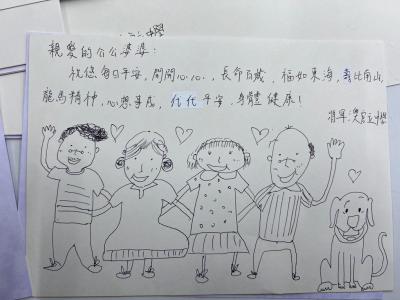 親愛的公公婆婆：
祝您每日平安，開開心心，長命百歲，福如東海，壽比南山，
龍馬精神，心想事成，代代平安，身體健康！